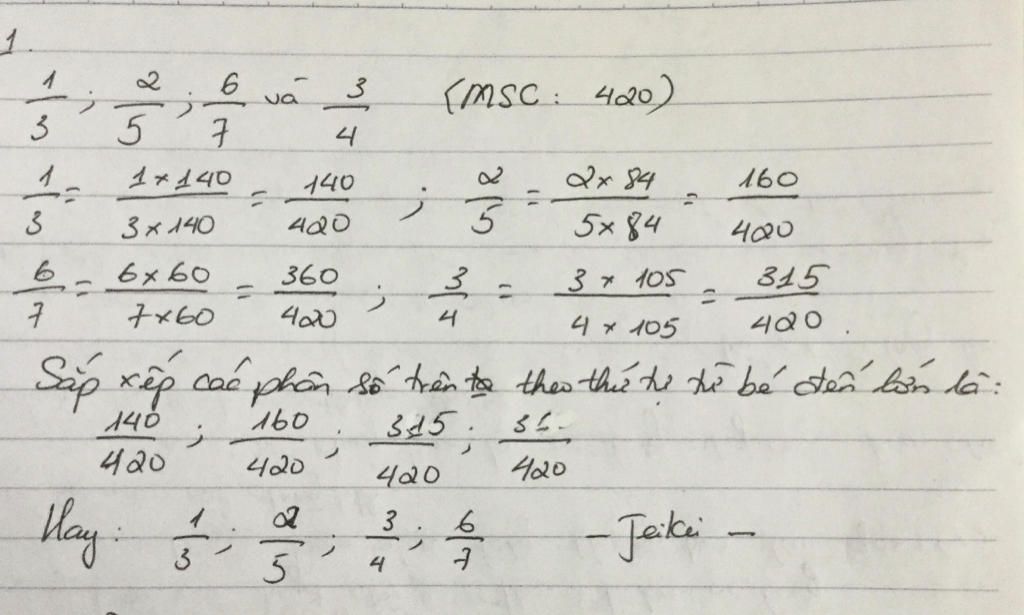 1.
1/3 ; 2/5 ; 6/7 và 3/4 (MSC: 420)
1/3 = 1×140/3×140 = 140/420 ; 2/5 = 2×84/5×84 = 160/420
6/7 = 6×60/7×60 = 360/420 ; 3/4 = 3×105/4×105 = 315/420.
Sắp xếp các phân số trên theo thứ tự từ bé đến lớn là:
140/420 ; 160/420 ; 315/420 ; /420
Hay: 1/3 ; 2/5 ; 3/4 ; 6/7 – Jeikei –